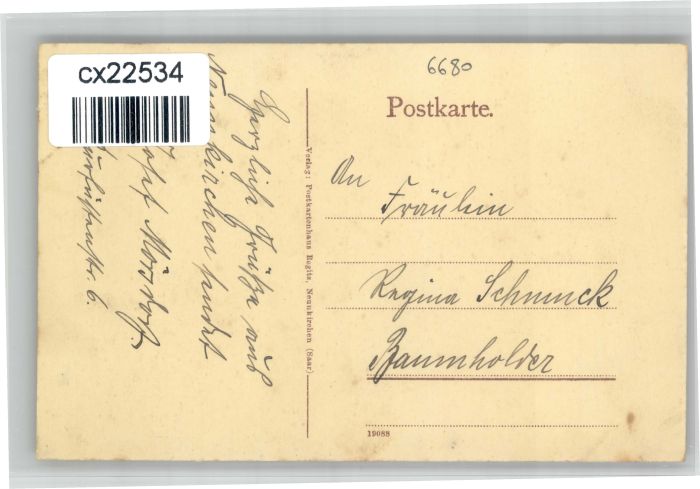 cx22534
6680
Postkarte.
An
Fräulein
Regina Schmuck
Baumholder
19088
Verlag: Postkartenhaus Regitz, Neunkirchen (Saar)
Herzliche Grüße aus
Neunkirchen sendet
Morsdorf.
6.